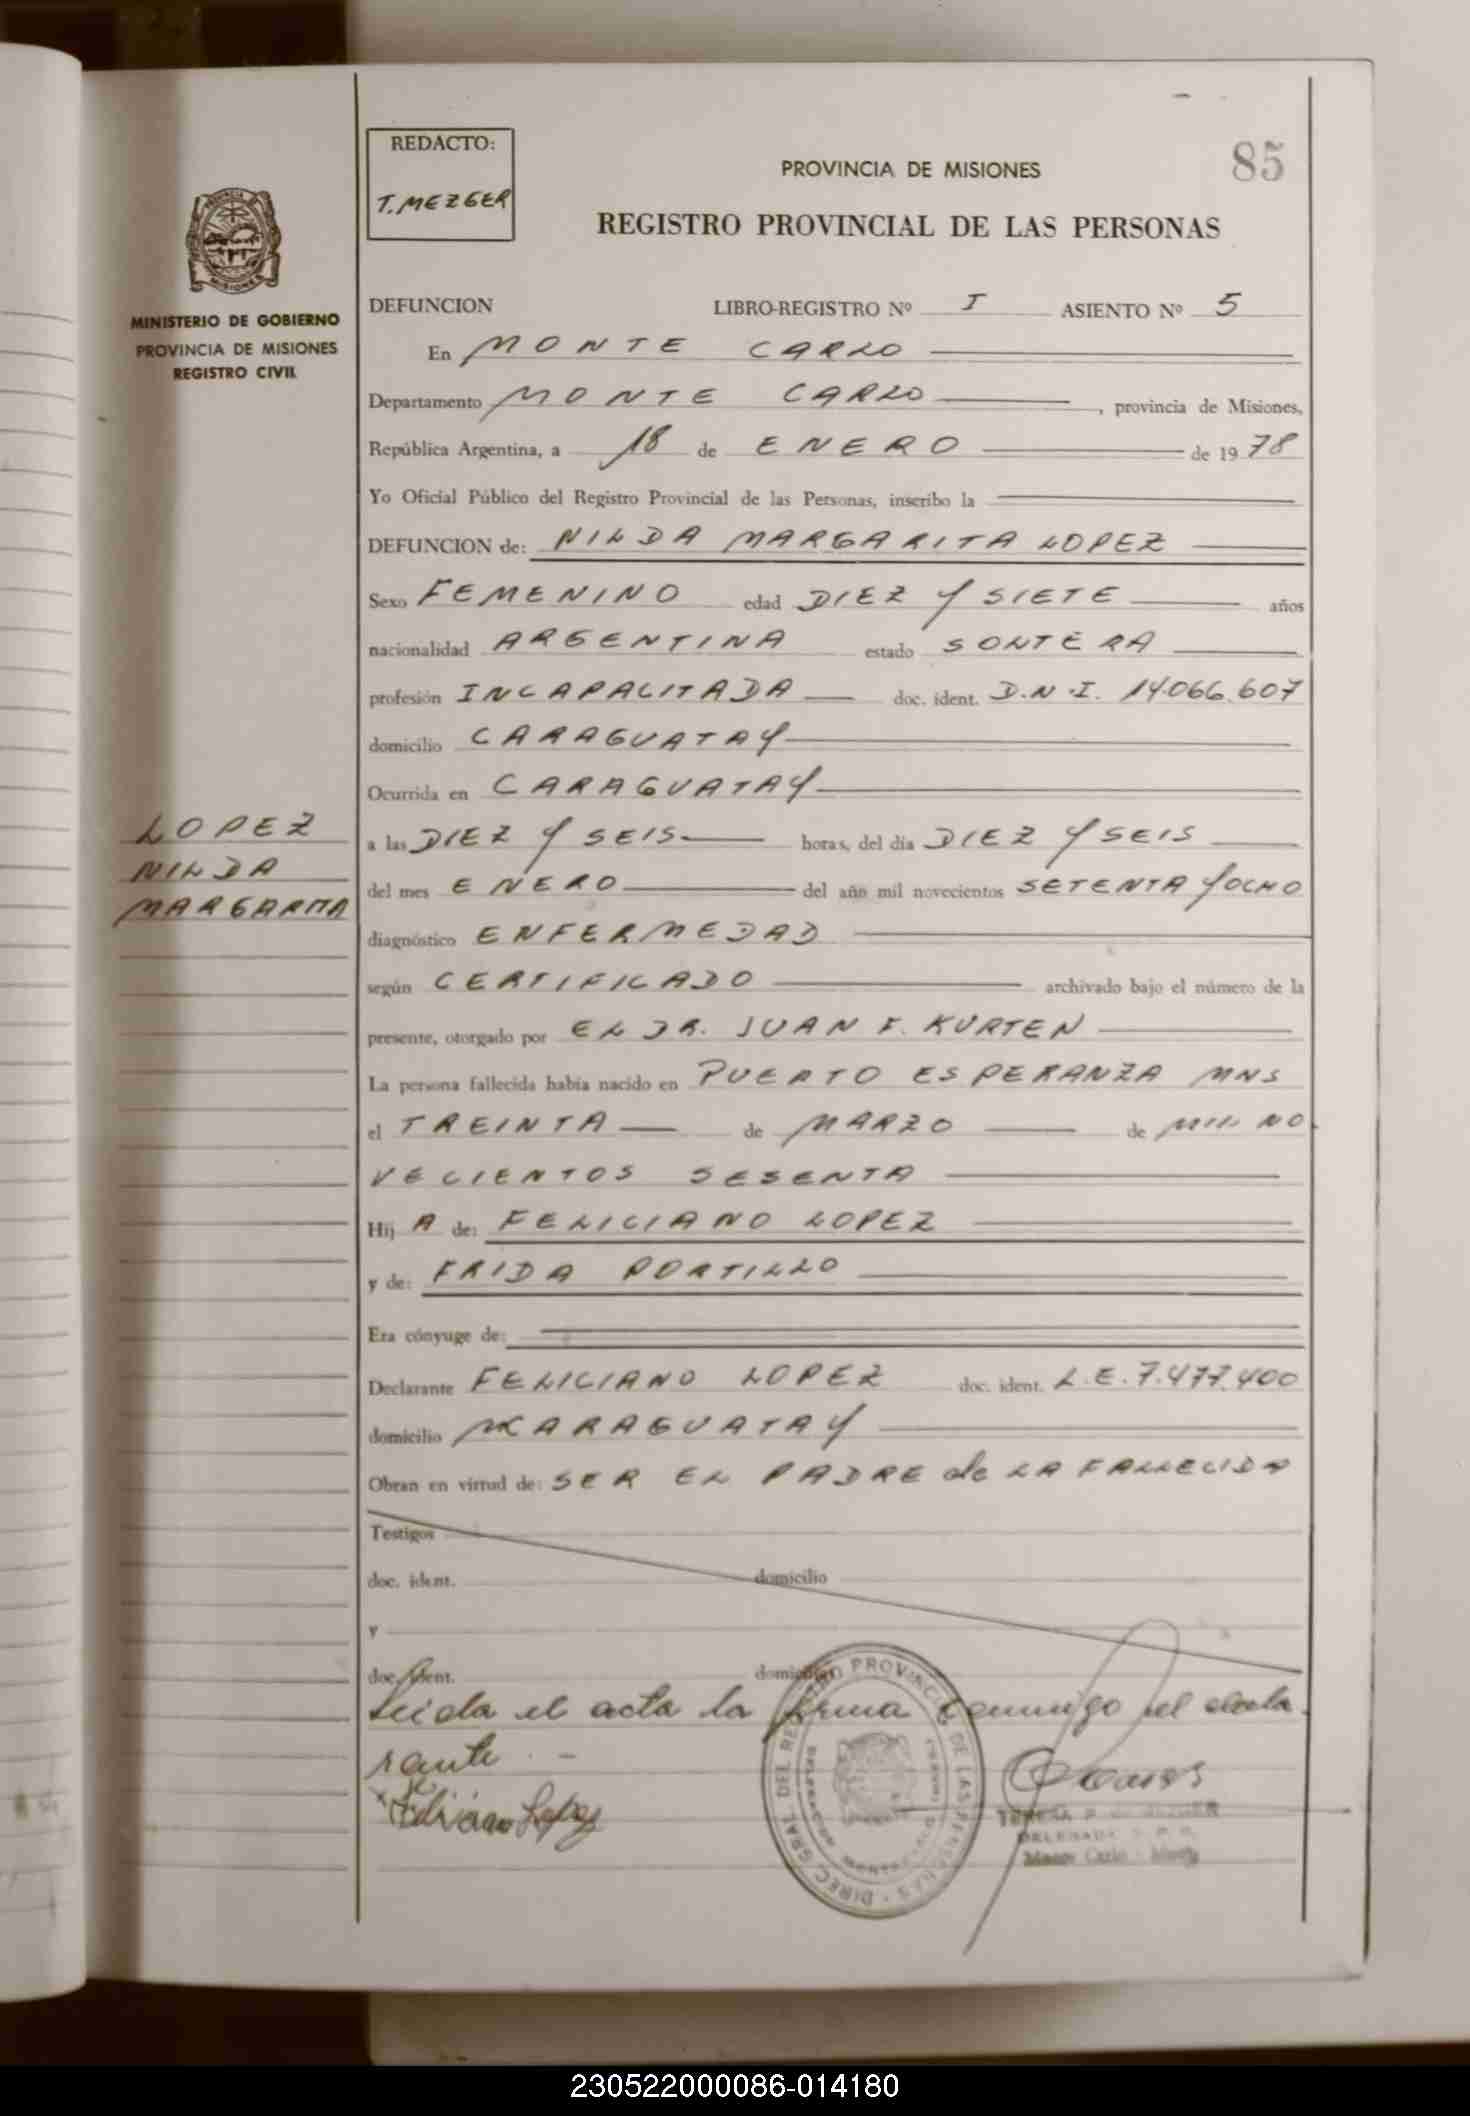 85
REDACTO:
T. MEZGER
PROVINCIA DE MISIONES
REGISTRO PROVINCIAL DE LAS PERSONAS
MINISTERIO DE GOBIERNO
PROVINCIA DE MISIONES
REGISTRO CIVIL
DEFUNCION LIBRO-REGISTRO Nº I ASIENTO Nº 5
En MONTE CARLO
Departamento MONTE CARLO, provincia de Misiones,
República Argentina, a 18 de ENERO de 1978
Yo Oficial Público del Registro Provincial de las Personas, inscribo la
DEFUNCION de: NILDA MARGARITA LOPEZ
Sexo FEMENINO edad DIEZ Y SIETE años
nacionalidad ARGENTINA estado SOLTERA
profesión INCAPACITADA doc. ident. D.N.I. 14.066.607
domicilio CARAGUATAY
Ocurrida en CARAGUATAY
LOPEZ
NILDA
MARGARITA
a las DIEZ Y SEIS horas, del día DIEZ Y SEIS
del mes ENERO del año mil novecientos SETENTA Y OCHO
diagnóstico ENFERMEDAD
según CERTIFICADO archivado bajo el número de la
presente, otorgado por EL DR. JUAN F. KURTEN
La persona fallecida había nacido en PUERTO ESPERANZA MNS
el TREINTA de MARZO de MIL NO
VECIENTOS SESENTA
Hij A de: FELICIANO LOPEZ
y de: FRIDA PORTILLO
Era cónyuge de:
Declarante FELICIANO LOPEZ doc. ident. L.E. 7.477.400
domicilio CARAGUATAY
Obran en virtud de: SER EL PADRE de LA FALLECIDA
Testigos
doc. ident. domicilio
y
doc. ident. domicilio
Leida el acta la firma conmigo el decla
rante. -
Feliciano Lopez
DIREC. GRAL. DEL REGISTRO PROVINCIAL DE LAS PERSONAS
TERESA P. DE MEZGER
DELEGADA R. P. P.
Monte Carlo - Mnes
230522000086-014180